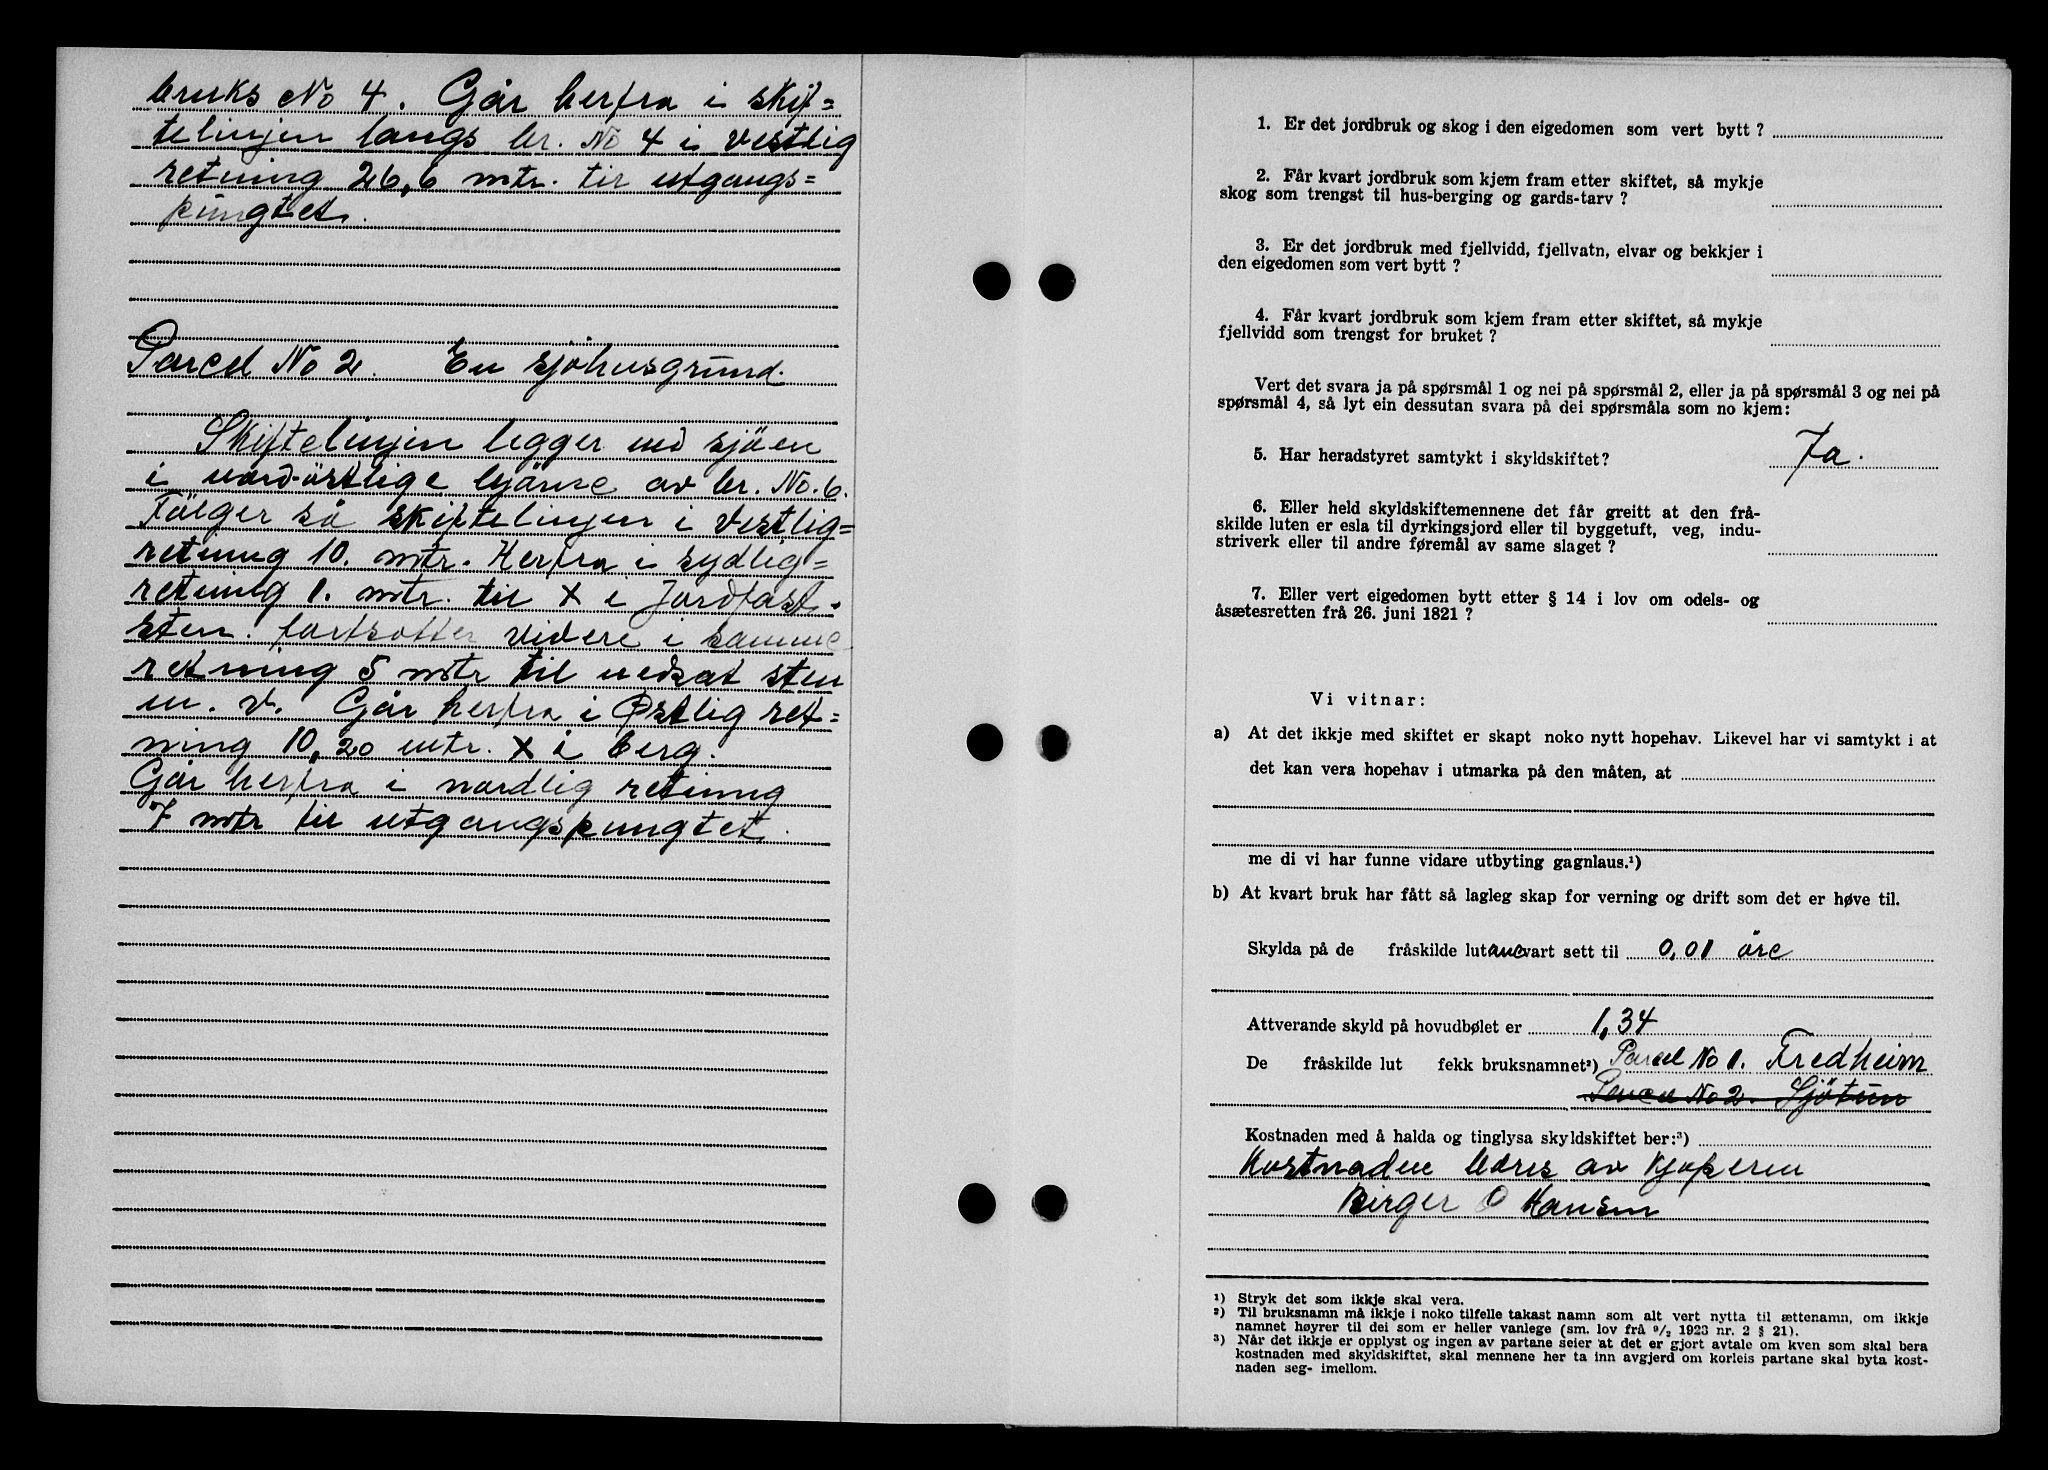 bruks No 4. Går herfra i skif=
telinjen langs br. No 4 i vestlig
retning 26,6 mtr. til utgangs=
pungtet.
Parcel No 2. En sjöhusgrund.
Skiftelinjen legger ved sjöen
i nord-östlige hjörne av br. No. 6.
Fölger så skiftelinjen i vestlig=
retning 10. mtr. Herfra i sydlig=
retning 1. mtr. til X i Jordfast-
sten. fortsetter videre i samme
retning 5 mtr til nedsat sten
m. v. Går herfra i Østlig ret=
ning 10,20 mtr. X i berg.
Går herfra i nordlig retning
7 mtr til utgangspungtet.
1. Er det jordbruk og skog i den eigedomen som vert bytt ?
2. Får kvart jordbruk som kjem fram etter skiftet, så mykje
skog som trengst til hus-berging og gards-tarv ?
3. Er det jordbruk med fjellvidd, fjellvatn, elvar og bekkjer i
den eigedomen som vert bytt ?
4. Får kvart jordbruk som kjem fram etter skiftet, så mykje
fjellvidd som trengst for bruket ?
Vert det svara ja på spørsmål 1 og nei på spørsmål 2, eller ja på spørsmål 3 og nei på
spørsmål 4, så lyt ein dessutan svara på dei spørsmåla som no kjem:
5. Har heradstyret samtykt i skyldskiftet? Ja.
6. Eller held skyldskiftemennene det får greitt at den frå-
skilde luten er esla til dyrkingsjord eller til byggetuft, veg, indu-
striverk eller til andre føremål av same slaget ?
7. Eller vert eigedomen bytt etter § 14 i lov om odels- og
åsætesretten frå 26. juni 1821 ?
Vi vitnar:
a) At det ikkje med skiftet er skapt noko nytt hopehav. Likevel har vi samtykt i at
det kan vera hopehav i utmarka på den måten, at
me di vi har funne vidare utbyting gagnlaus.¹)
b) At kvart bruk har fått så lagleg skap for verning og drift som det er høve til.
Skylda på de fråskilde lutane vart sett til 0,01 öre
Attverande skyld på hovudbølet er 1,34
De fråskilde lut fekk bruksnamnet²) Parcel No 1. Fredheim
Parcel No 2. Sjötun
Kostnaden med å halda og tinglysa skyldskiftet ber:³)
Kostnaden bæres av kjöperen
Birger O Hansen
¹) Stryk det som ikkje skal vera.
²) Til bruksnamn må ikkje i noko tilfelle takast namn som alt vert nytta til ættenamn, om ikkje
namnet høyrer til dei som er heller vanlege (sm. lov frå ⁹/₂ 1923 nr. 2 § 21).
³) Når det ikkje er opplyst og ingen av partane seier at det er gjort avtale om kven som skal bera
kostnaden med skyldskiftet, skal mennene her ta inn avgjerd om korleis partane skal byta kost-
naden seg- imellom.